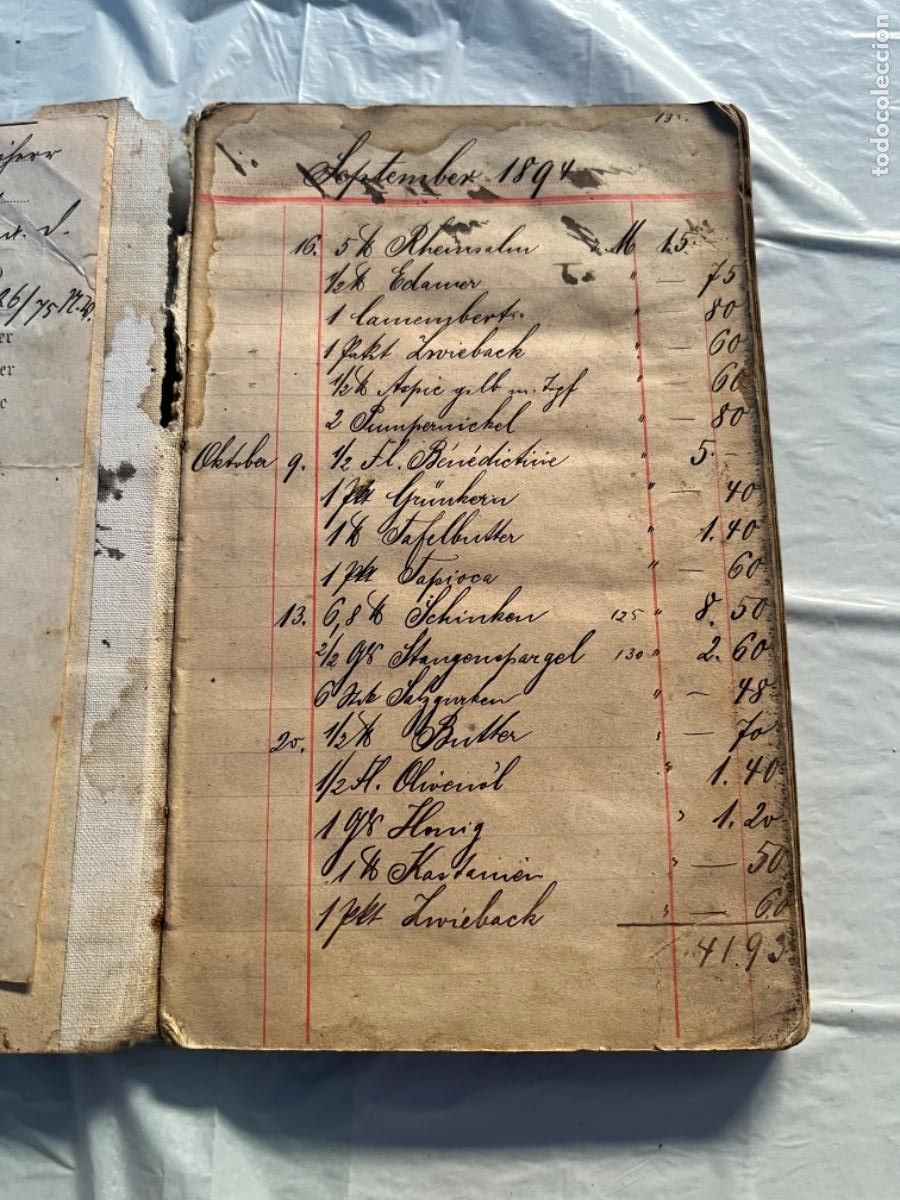 September 1894
16. 5 ℔ Rheinsalm M 15.
1/2 ℔ Edamer " — 75
1 Camembert " — 80
1 Pakt Zwieback " — 60
1/2 ℔ Aspic gelb m. " — 60
2 Pumpernickel " — 80
Oktober 9. 1/2 Fl. Bénédictine " 5. –
1 Pkt Grünkern " — 40
1 ℔ Tafelbutter " 1.40
1 Pkt Tapioca " — 60
13. 6,8 ℔ Schinken 125 " 8.50
2/2 Gls Stangenspargel 130 " 2.60
6 Stck Salzgurken " — 48
20. 1/2 ℔ Butter " — 70
1/2 Fl. Olivenöl " 1.40
1 Gls Honig " 1.20
1 ℔ Kastanien " — 50
1 Pkt Zwieback " — 60
41.93
26/75 N.W.
er
er
c
todocoleccion